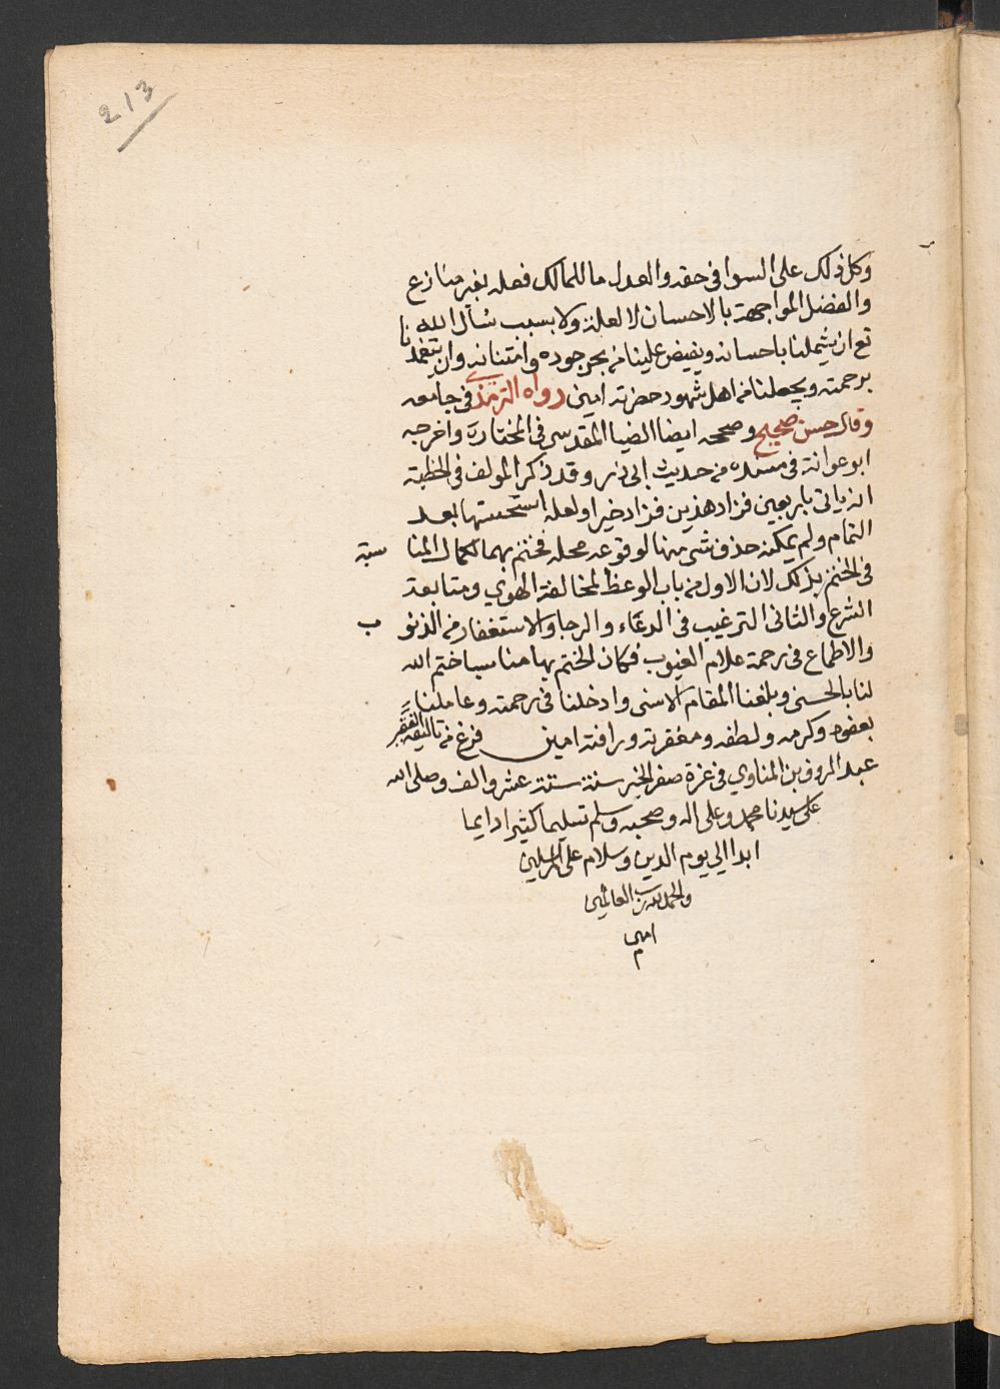 213
وكل ذلك على السوا في حقه والعدل ما للمالك فعله بغير منازع
والفضل المواجهة بالاحسان لا لعلة ولا بسبب نسأل الله
تع ان يشملنا باحسانه ويفيض علينا من بحر جوده وامتنانه وان يتغمدنا
برحمته ويجعلنا من اهل شهود حضرته امين رواه الترمذي في جامعه
وقال حسن صحيح وصححه ايضا الضيا المقدسي في المختارة واخرجه
ابو عوانة في مسنده من حديث ابي ذر وقد ذكر المولف في الخطبة
انه ياتي باربعين فزاد هذين فزاد خيرا ولعله بعد
التمام ولم يمكنه حذف شي منها لوقوعه محله فختم بهما لكمال المناسبة
في الختم بذلك لان الاول من باب الوعظ لمخالفة الهوي ومتابعة
الشرع والثاني الترغيب في الدعاء والرجا والاستغفار من الذنوب
والاطماع في رحمة علام الغيوب فكان الختم بها مناسبا ختم الله
لنا بالحسنى وبلغنا المقام الاسنى وادخلنا في رحمته وعاملنا
بعفوه وكرمه ولطفه ومغفرته ورافته امين فرغ من تاليفه الفقير
عبد الروف بن المناوي في غرة صفر الخير سنة ستة عشر والف وصلى الله
على سيدنا محمد وعلى اله وصحبه وسلم تسليما كثيرا دايما
ابدا الي يوم الدين وسلام على المرسلين
والحمد لله رب العالمين
امين
م